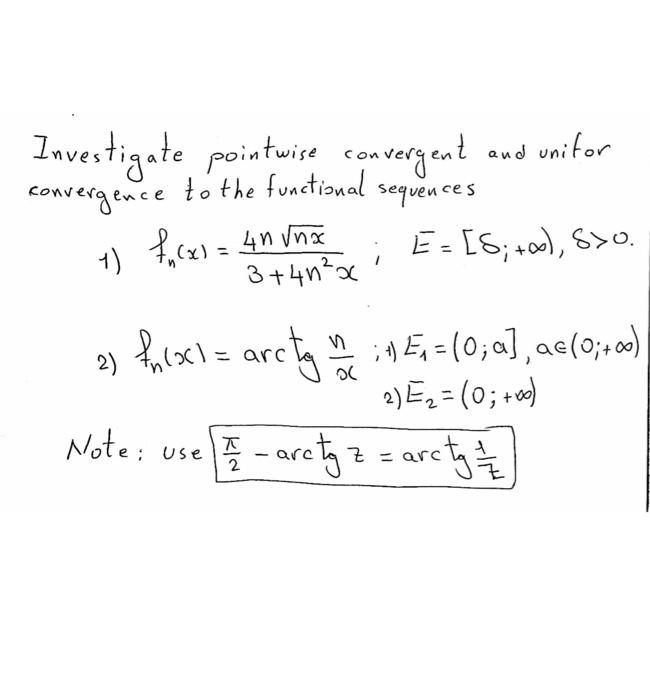 Investigate pointwise convergent and unifor
convergence to the functional sequences
1) fₙ(x) = 4n √(nx) / (3 + 4n²x) ; E = [δ; +∞), δ>0.
2) fₙ(x) = arctg n/x ; 1) E₁ = (0; a], a∈(0; +∞)
2) E₂ = (0; +∞)
Note: use π/2 - arctg z = arctg 1/z